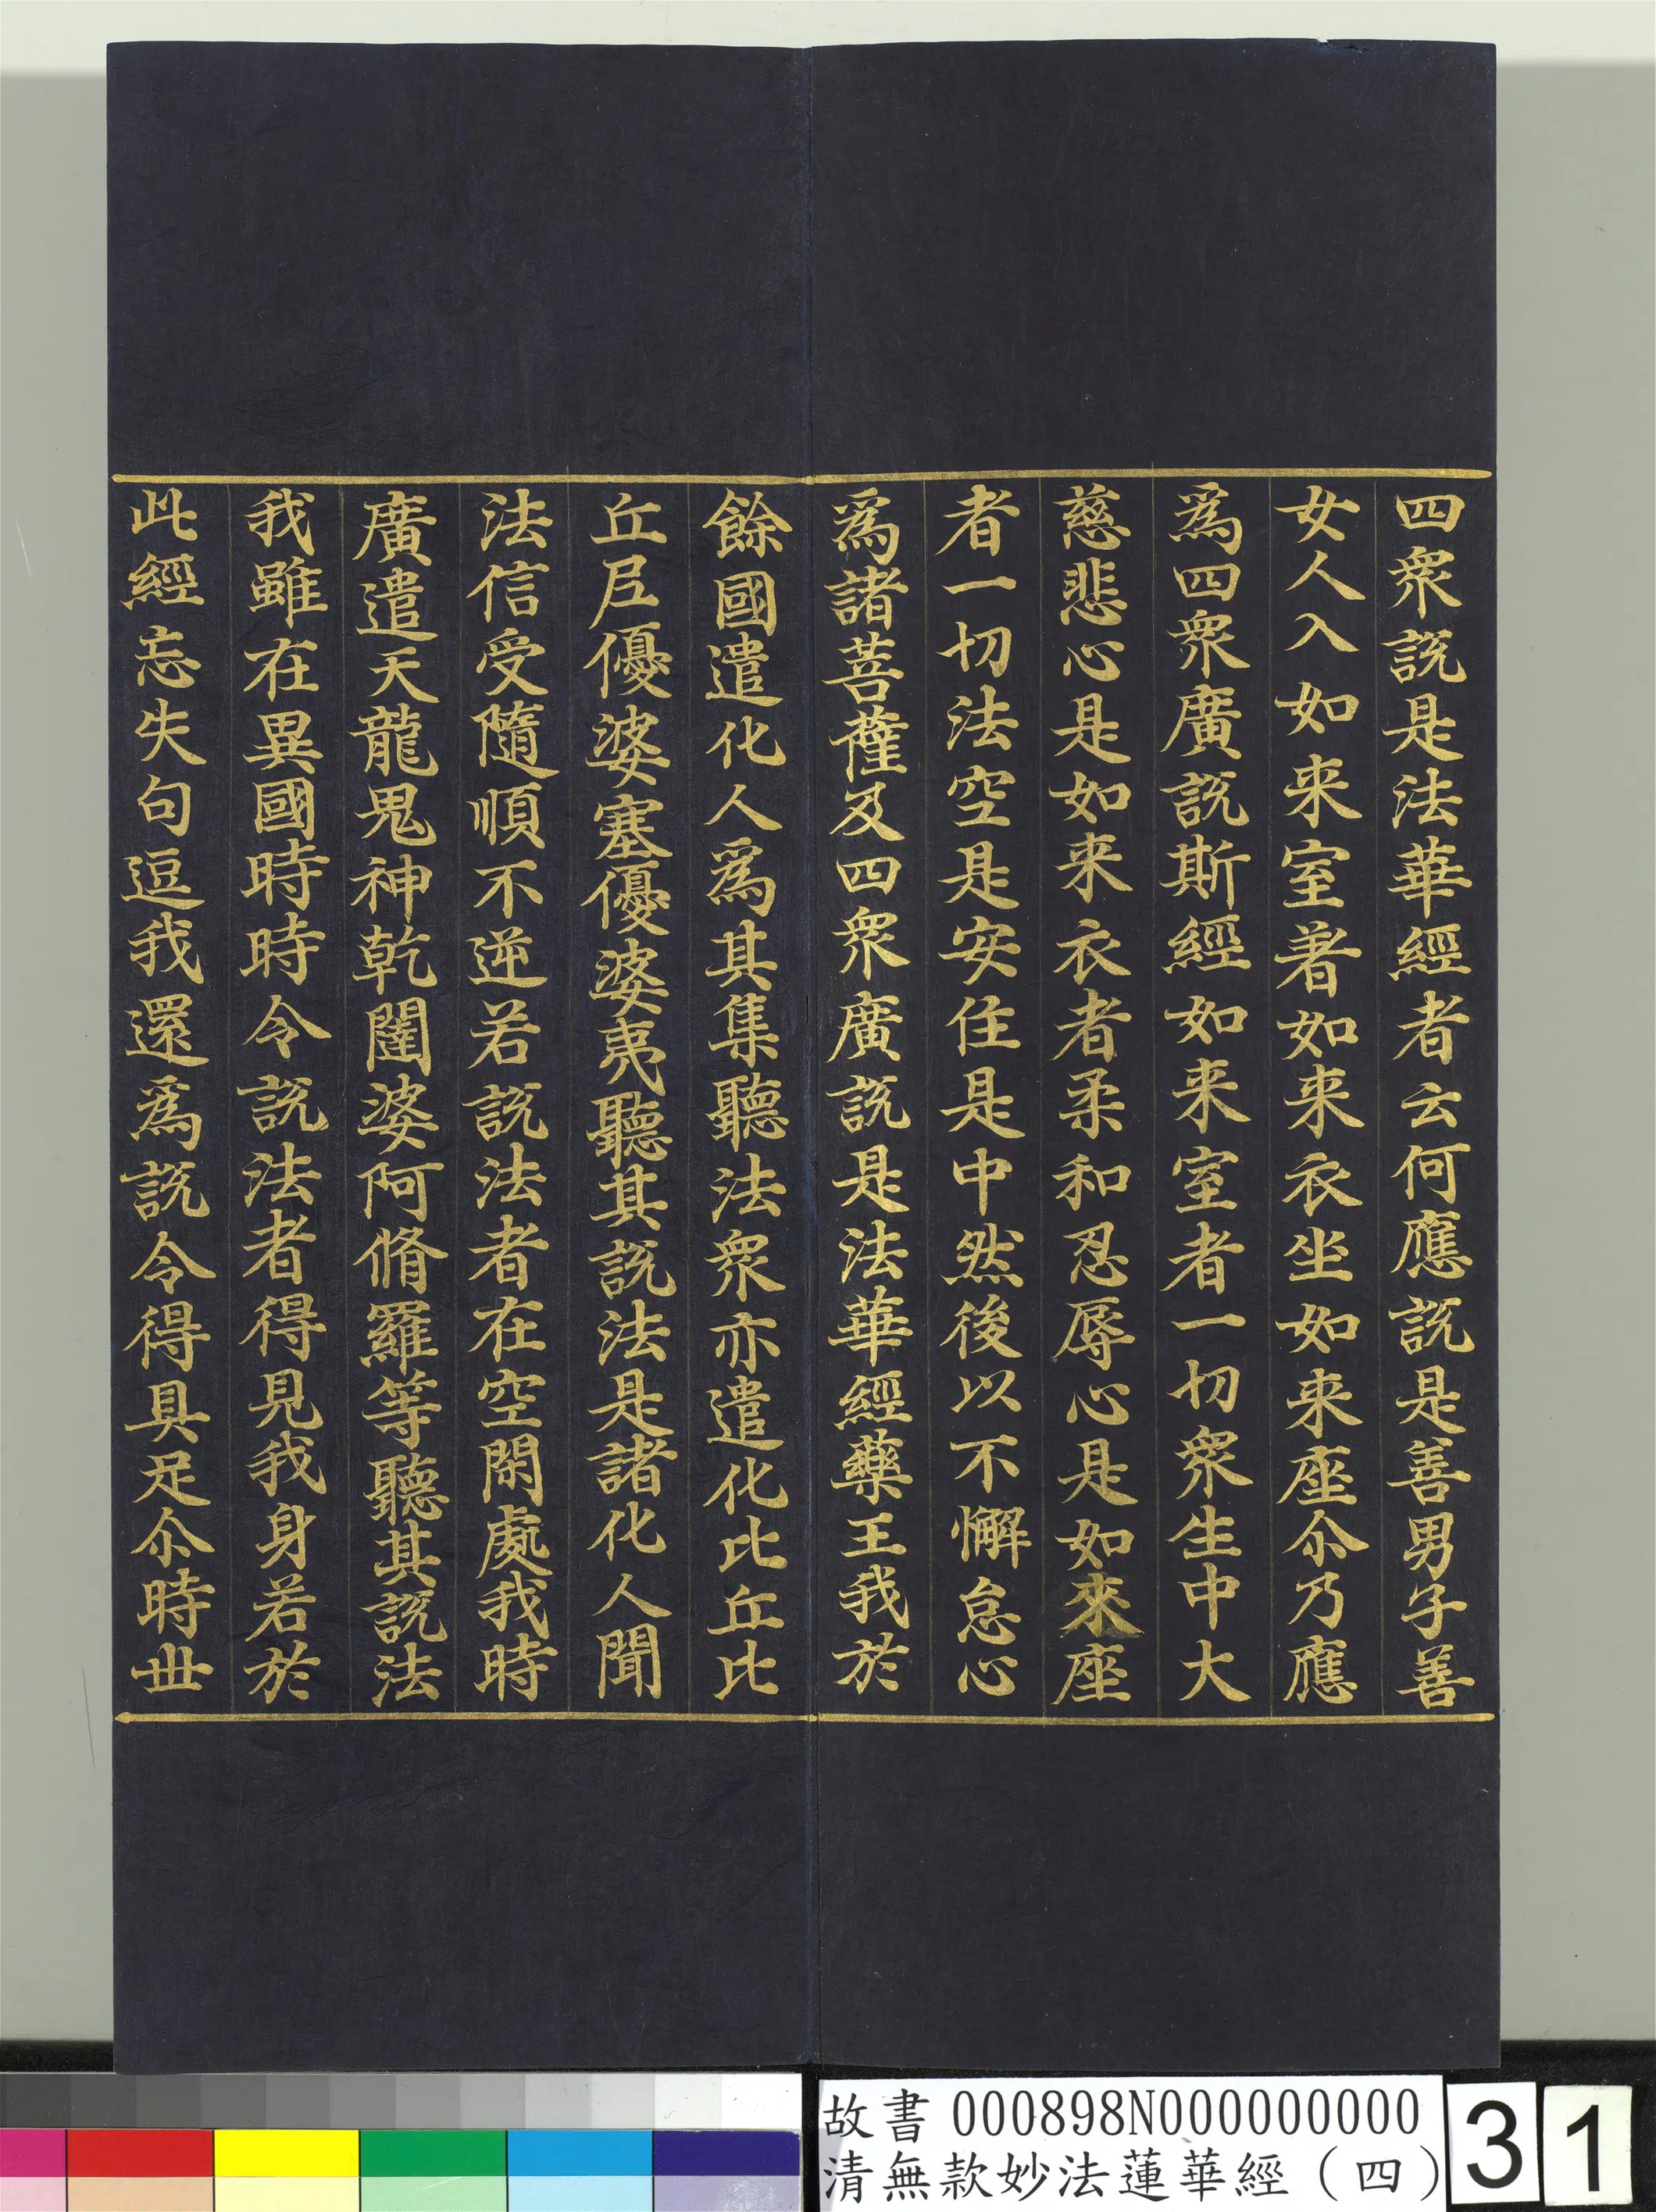 四衆説是法華經者云何應説是善男子善
女人入如来室著如来衣坐如来座尒乃應
爲四衆廣説斯經如来室者一切衆生中大
慈悲心是如来衣者柔和忍辱心是如來座
者一切法空是安住是中然後以不懈怠心
爲諸菩薩及四衆廣説是法華經藥王我於
餘國遣化人爲其集聽法衆亦遣化比丘比
丘尼優婆塞優婆夷聽其説法是諸化人聞
法信受隨順不逆若説法者在空閑處我時
廣遣天龍鬼神乾闥婆阿脩羅等聽其説法
我雖在異國時時令説法者得見我身若於
此經忘失句逗我還爲説令得具足尒時世
故書 000898N000000000
清無款妙法蓮華經（四）
31